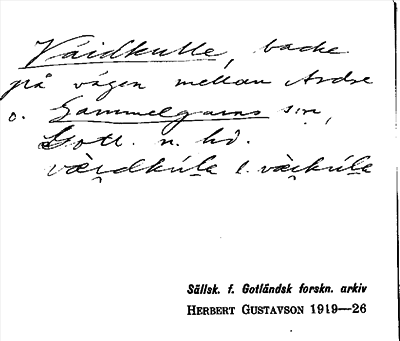 Väidkulle, backe
på vägen mellan Ardre
o. Gammelgarns sn,
Gotl. n. hd.
Sällsk. f. Gotländsk forskn. arkiv
HERBERT GUSTAVSON 1919—26